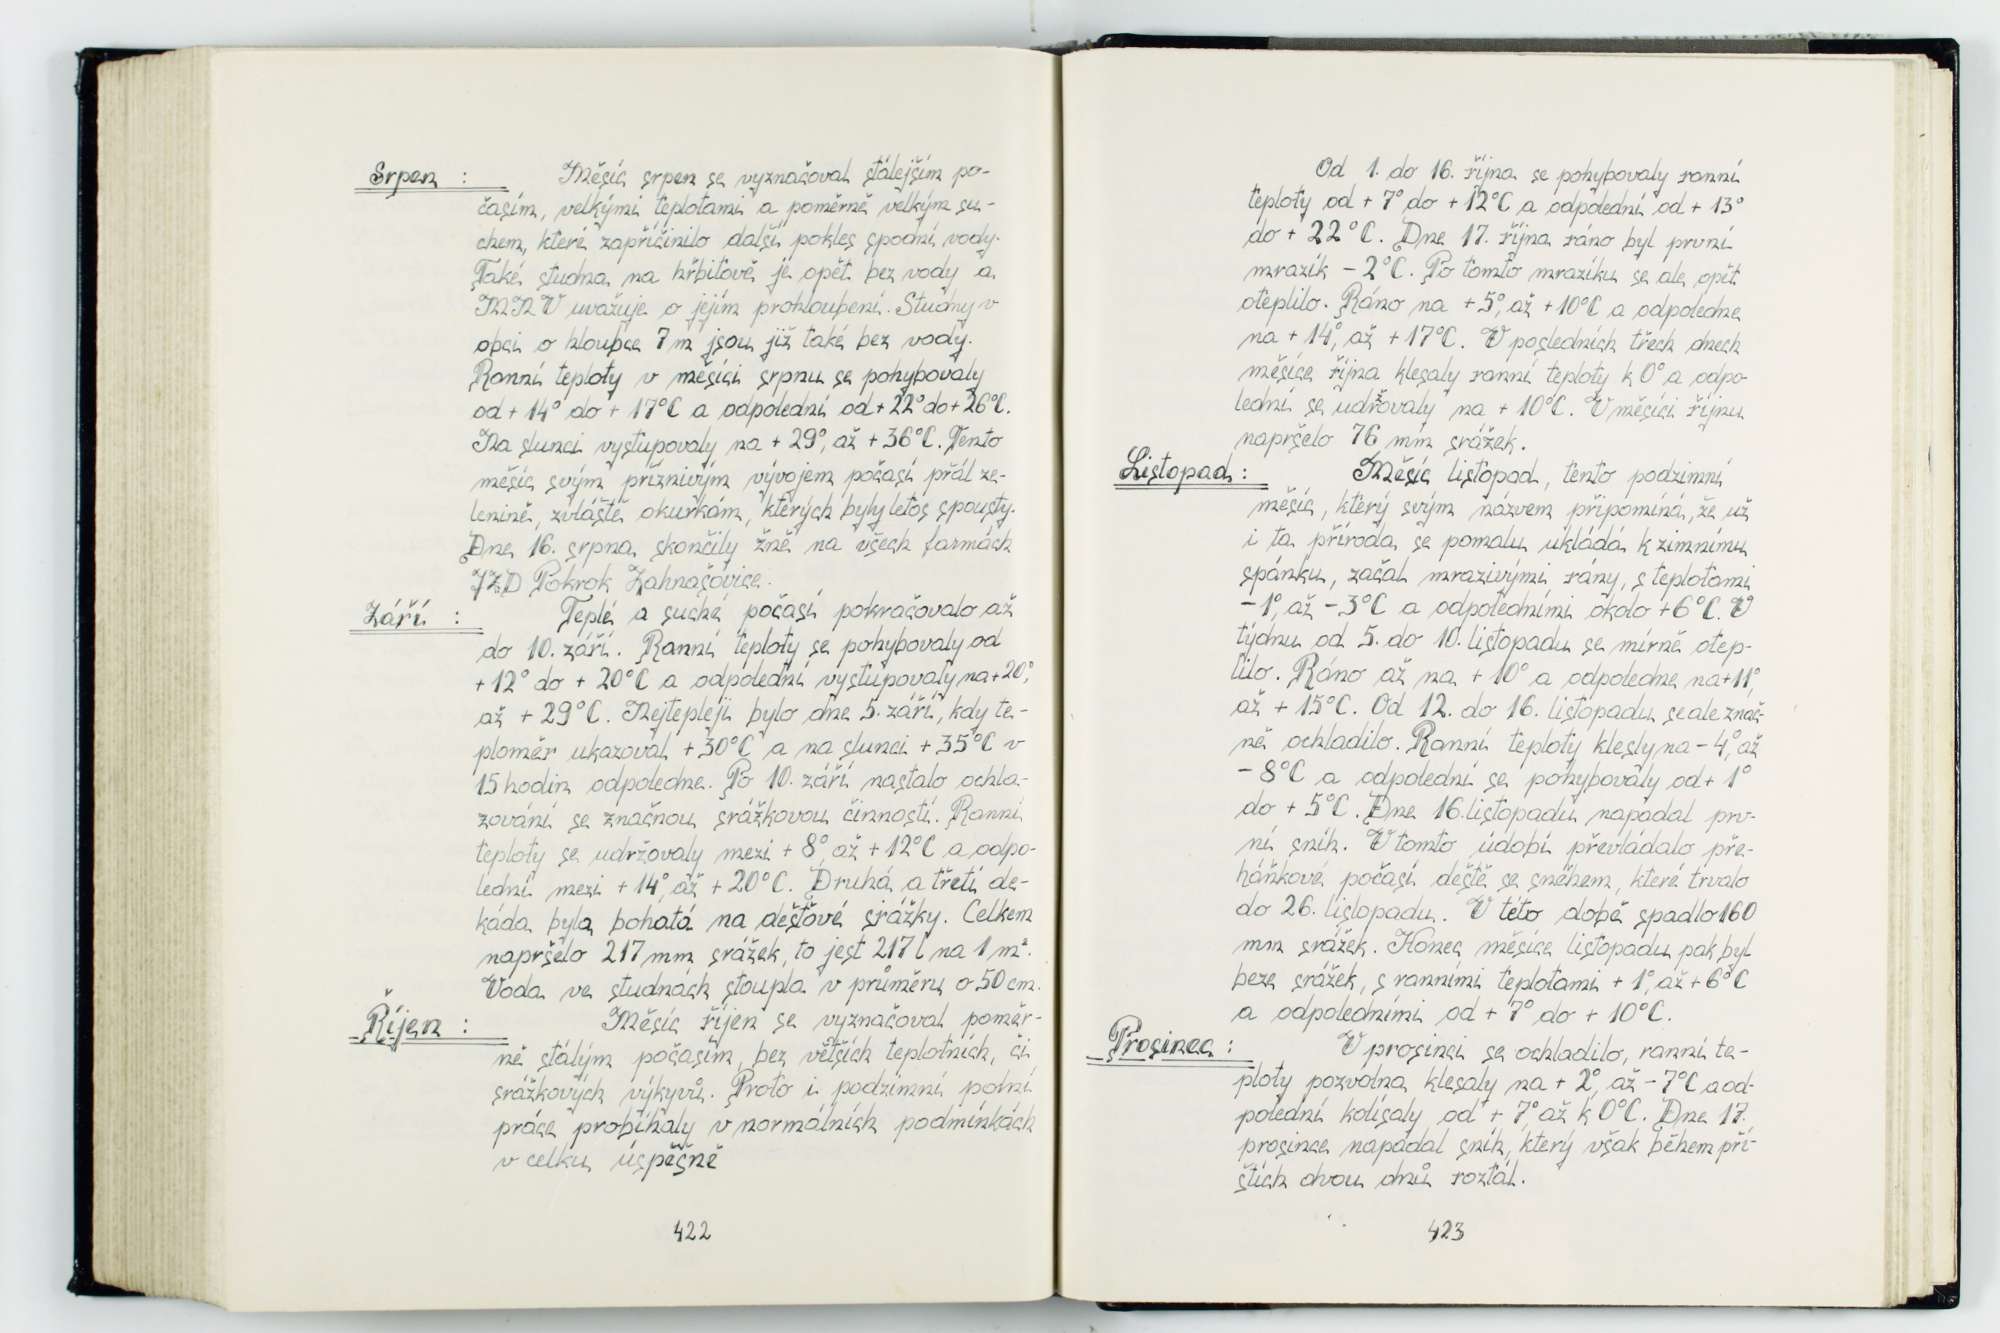 Srpen : Měsíc srpen se vyznačoval stálejším po-
časím, velkými teplotami a poměrně velkým su-
chem, které zapříčinilo další pokles spodní vody.
Také studna na hřbitově je opět bez vody a
MNV uvažuje o jejím prohloubení. Studny v
obci o hloubce 7 m jsou již také bez vody.
Ranní teploty v měsíci srpnu se pohybovaly
od + 14° do + 17°C a odpolední od + 22° do + 26°C.
Na slunci vystupovaly na + 29°, až + 36°C. Tento
měsíc svým příznivým vývojem počasí přál ze-
lenině, zvláště okurkám, kterých byly letos spousty.
Dne 16. srpna skončily žně na všech farmách
JZD Pokrok Zahnašovice.
Září : Teplé a suché počasí pokračovalo až
do 10. září. Ranní teploty se pohybovaly od
+ 12° do + 20°C a odpolední vystupovaly na + 20°,
až + 29°C. Nejtepleji bylo dne 5. září, kdy te-
ploměr ukazoval + 30°C a na slunci + 35°C v
15 hodin odpoledne. Po 10. září nastalo ochla-
zování se značnou srážkovou činností. Ranní
teploty se udržovaly mezi + 8°, až + 12°C a odpo-
lední mezi + 14°, až + 20°C. Druhá a třetí de-
káda byla bohatá na dešťové srážky. Celkem
napršelo 217 mm srážek, to jest 217 l na 1 m².
Voda ve studnách stoupla v průměru o 50 cm.
Říjen : Měsíc říjen se vyznačoval poměr-
ně stálým počasím, bez větších teplotních, či
srážkových výkyvů. Proto i podzimní polní
práce probíhaly v normálních podmínkách
v celku úspěšně
422
Od 1. do 16. října se pohybovaly ranní
teploty od + 7° do + 12°C a odpolední od + 13°
do + 22°C. Dne 17. října ráno byl první
mrazík - 2°C. Po tomto mrazíku se ale opět
oteplilo. Ráno na + 5°, až + 10°C a odpoledne
na + 14°, až + 17°C. V posledních třech dnech
měsíce října klesaly ranní teploty k 0° a odpo-
lední se udržovaly na + 10°C. V měsíci říjnu
napršelo 76 mm srážek.
Listopad : Měsíc listopad, tento podzimní
měsíc, který svým názvem připomíná, že už
i ta příroda se pomalu ukládá k zimnímu
spánku, začal mrazivými rány, s teplotami
- 1°, až - 3°C a odpoledními okolo + 6°C. V
týdnu od 5. do 10. listopadu se mírně otep-
lilo. Ráno až na + 10° a odpoledne na + 11°,
až + 15°C. Od 12. do 16. listopadu se ale znač-
ně ochladilo. Ranní teploty klesly na - 4°, až
- 8°C a odpolední se pohybovaly od + 1°
do + 5°C. Dne 16. listopadu napadal prv-
ní sníh. V tomto údobí převládalo pře-
háňkové počasí deště se sněhem, které trvalo
do 26. listopadu. V této době spadlo 160
mm srážek. Konec měsíce listopadu pak byl
beze srážek, s ranními teplotami + 1°, až + 6°C
a odpoledními od + 7° do + 10°C.
Prosinec : V prosinci se ochladilo, ranní te-
ploty pozvolna klesaly na + 2°, až - 7°C a od-
polední kolísaly od + 7° až k 0°C. Dne 17.
prosince napadal sníh, který však během pří-
štích dvou dnů roztál.
423